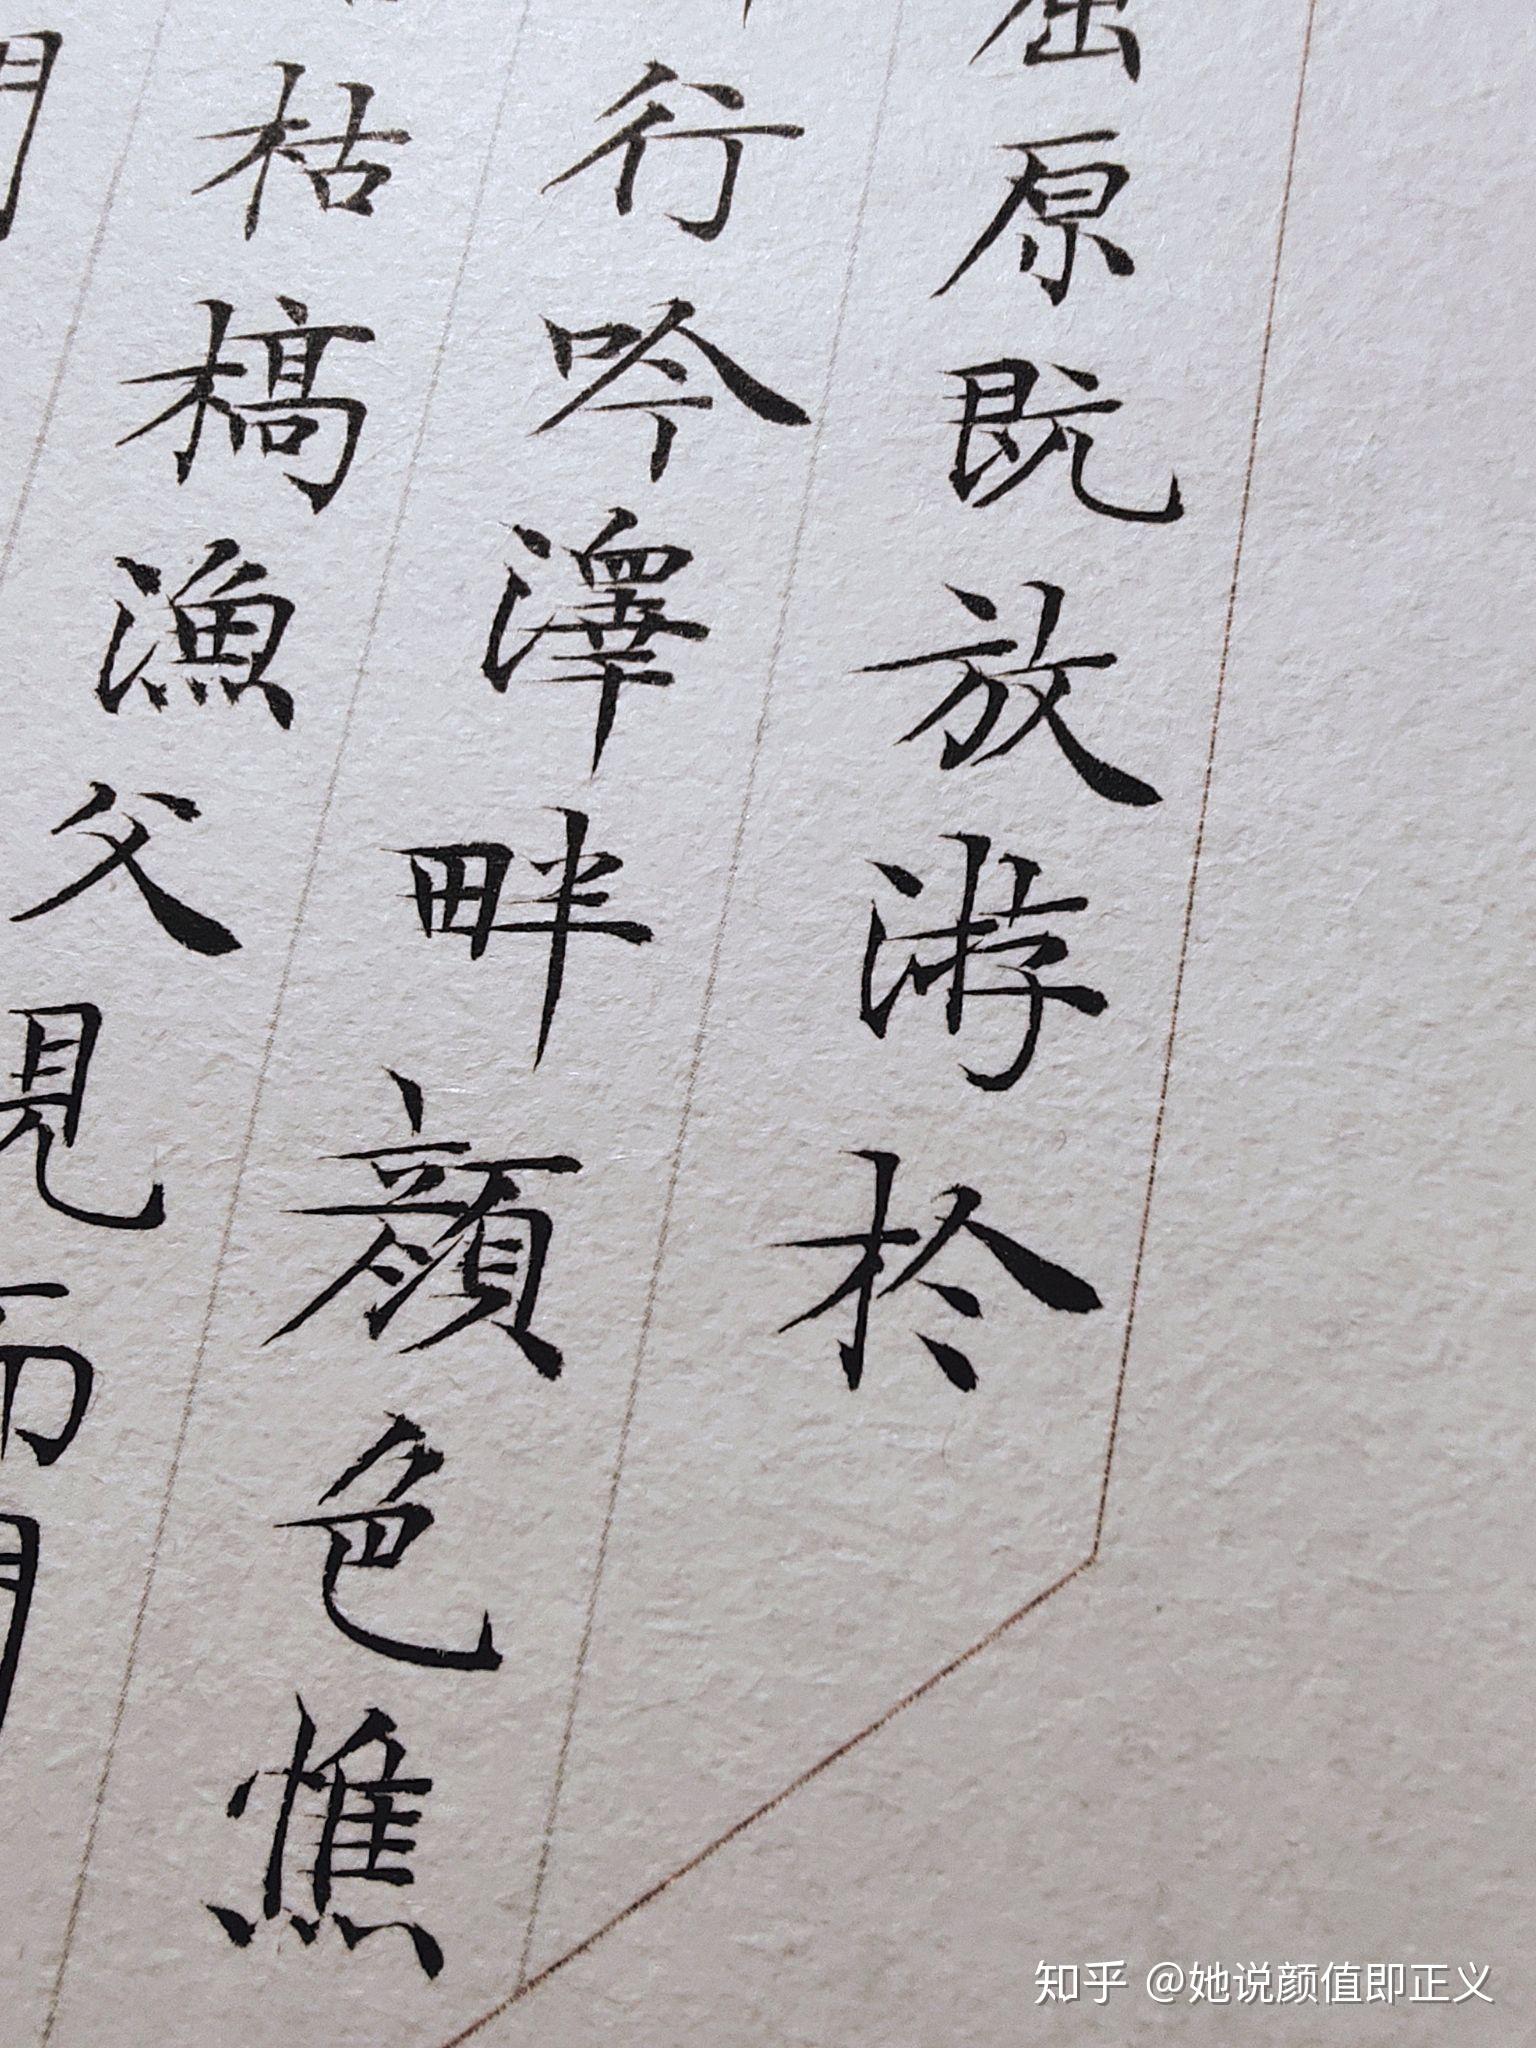 屈原既放游於
行吟澤畔顔色憔
枯槁漁父見而問
知乎 @她说颜值即正义